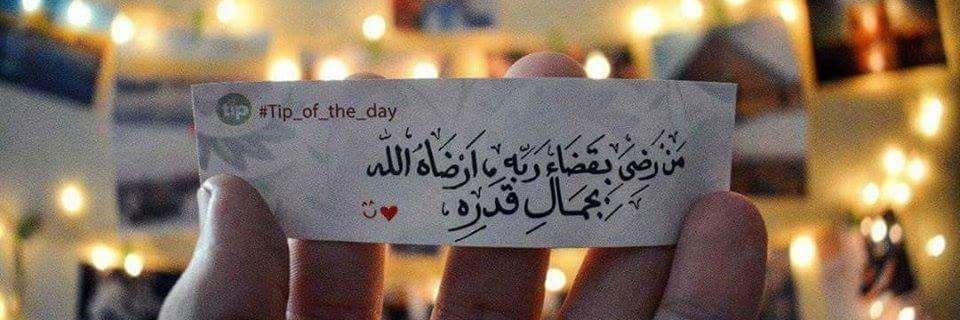 tip #Tip_of_the_day
مَنْ رَضِيَ بِقَضَاءِ رَبِّهِ، أَرْضَاهُ اللّٰه
بِجَمَالِ قَدَرِه